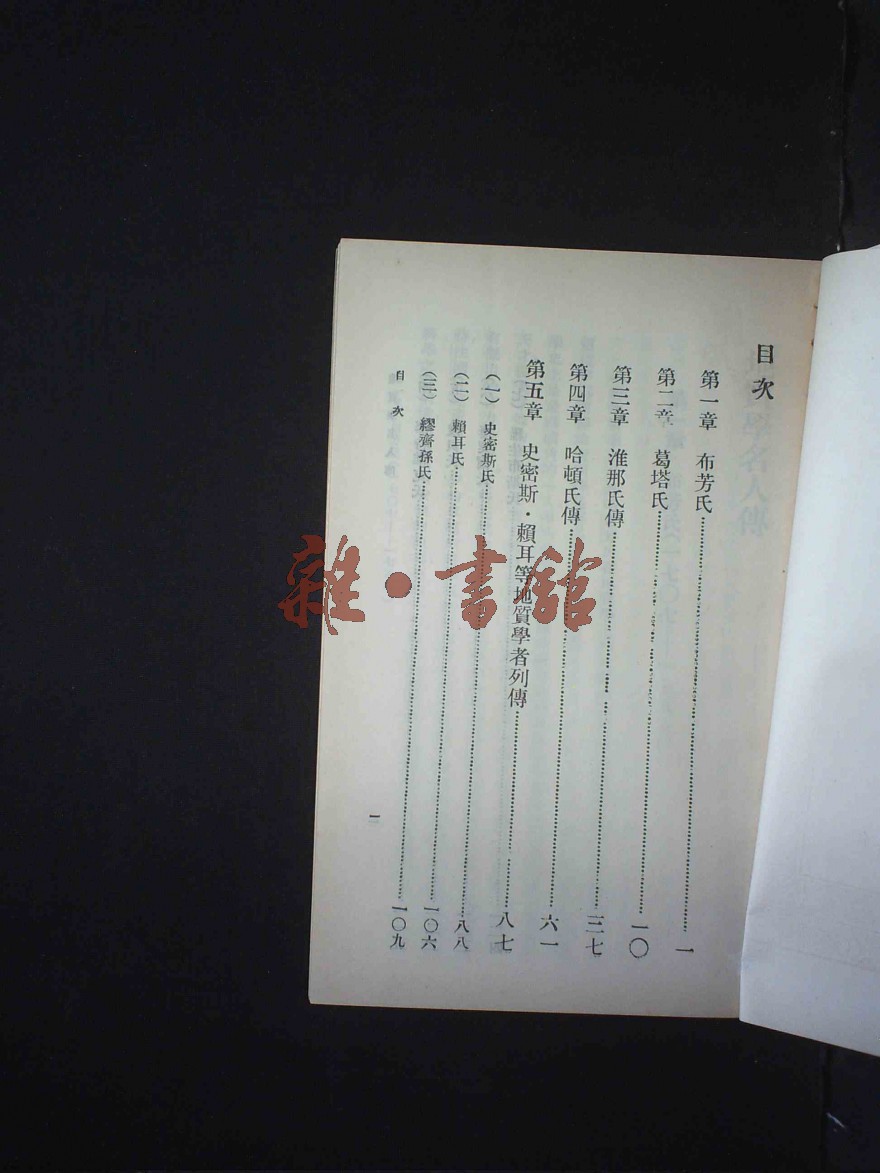 目次
第一章　布芳氏……一
第二章　葛塔氏……一〇
第三章　淮那氏傳……三七
第四章　哈頓氏傳……六一
第五章　史密斯・賴耳等地質學者列傳……八七
（一）史密斯氏……八八
（二）賴耳氏……一〇六
（三）繆齊孫氏……一〇九
目次　一
雜・書館